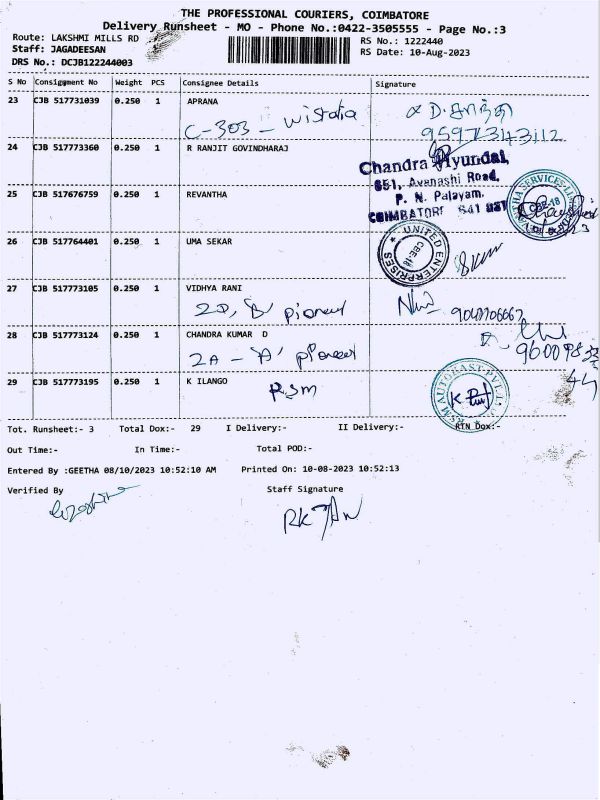 THE PROFESSIONAL COURIERS, COIMBATORE
Delivery Runsheet - MO - Phone No.:0422-3505555 - Page No.:3
Route: LAKSHMI MILLS RD
RS No.: 1222440
Staff: JAGADEESAN
RS Date: 10-Aug-2023
DRS No.: DCJB122244003
S No Consignment No Weight PCS Consignee Details Signature
23 CJB 517731039 0.250 1 APRANA
C-303 - wistaria
D. சாந்தி
9597343112
24 CJB 517773360 0.250 1 R RANJIT GOVINDHARAJ
Chandra Hyundai,
651, Avanashi Road,
P. N. Palayam.
COIMBATORE 641 037
25 CJB 517676759 0.250 1 REVANTHA
CBE-18
26 CJB 517764401 0.250 1 UMA SEKAR
UNITED ENTERPRISES
CBE-18
27 CJB 517773105 0.250 1 VIDHYA RANI
2D, 'B' pioneer
28 CJB 517773124 0.250 1 CHANDRA KUMAR D
2A - 'A' pioneer
29 CJB 517773195 0.250 1 K ILANGO
RSM
RSM AUTOKAST PVT. LTD.
Tot. Runsheet:- 3 Total Dox:- 29 I Delivery:- II Delivery:- RTN Dox:-
Out Time:- In Time:- Total POD:-
Entered By :GEETHA 08/10/2023 10:52:10 AM Printed On: 10-08-2023 10:52:13
Verified By Staff Signature